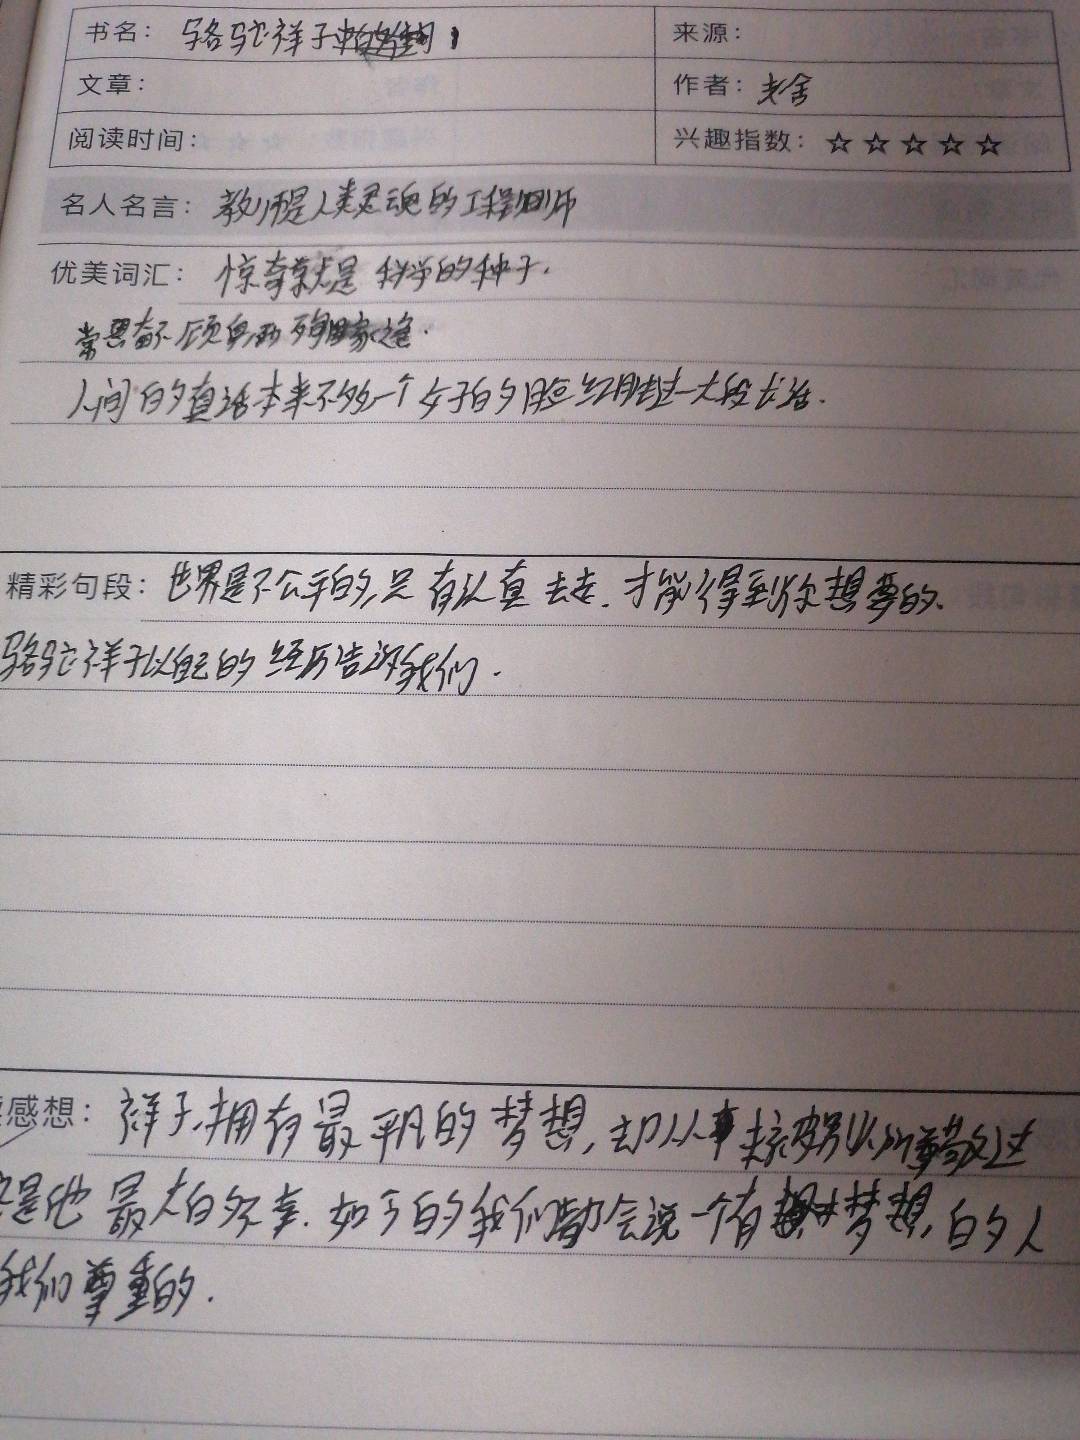 书名： 骆驼祥子 来源：
文章： 作者：老舍
阅读时间： 兴趣指数：☆☆☆☆☆
名人名言：教师是人类灵魂的工程师
优美词汇：惊奇就是科学的种子.
常思奋不顾身,而殉国家之急.
人间的真话本来不多,一个女子的脸红胜过一大段对话.
精彩句段：世界是不公平的,只有认真去走.才能得到你想要的.
骆驼祥子以自己的经历告诉我们.
感想：祥子,拥有最平凡的梦想,却从来努力过
是他最大的不幸.如今的我们都会说一个有梦想,的人
我们尊重的.